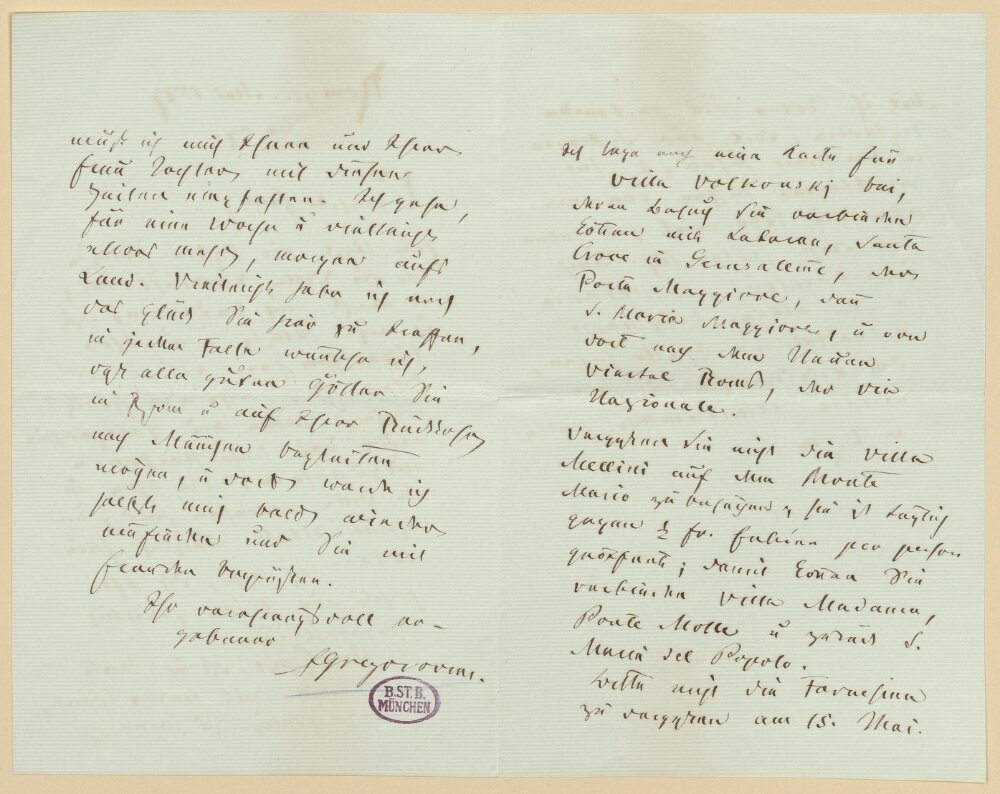 muß ich mich Ihnen und Ihrer
Frau Tochter mit diesen
Zeilen empfehlen. Ich gehe,
für eine Woche u vielleicht
etwas mehr, morgen aufs
Land. Vielleicht habe ich noch
das Glück Sie hier zu treffen,
in jedem Falle wünsche ich,
daß alle guten Götter Sie
in Rom u auf Ihrer Rückkehr
nach München begleiten
mögen, u dort werde ich
selbst mich bald wieder
einfinden und Sie mit
Freuden begrüßen.
Ihr verehrungsvoll er-
gebener
FGregorovius.
B.ST.B.
MÜNCHEN
Ich lege noch eine Karte für
Villa Volkonskj bei,
deren Besuch Sie verbinden
können mit Lateran, Santa
Croce in Gerusalemme, der
Porta Maggiore, dann
S. Maria Maggiore, u von
dort nach dem Neuen
Viertel Roms, der Via
Nazionale.
Vergessen Sie nicht die Villa
Mellini auf dem Monte
Mario zu besuchen; sie ist täglich
gegen ½ fr. Entrée per person
geöffnet; damit können Sie
verbinden Villa Madama,
Ponte Molle u zurück S.
Maria del Popolo.
Bitte nicht die Farnesina
zu vergessen am 15. Mai.